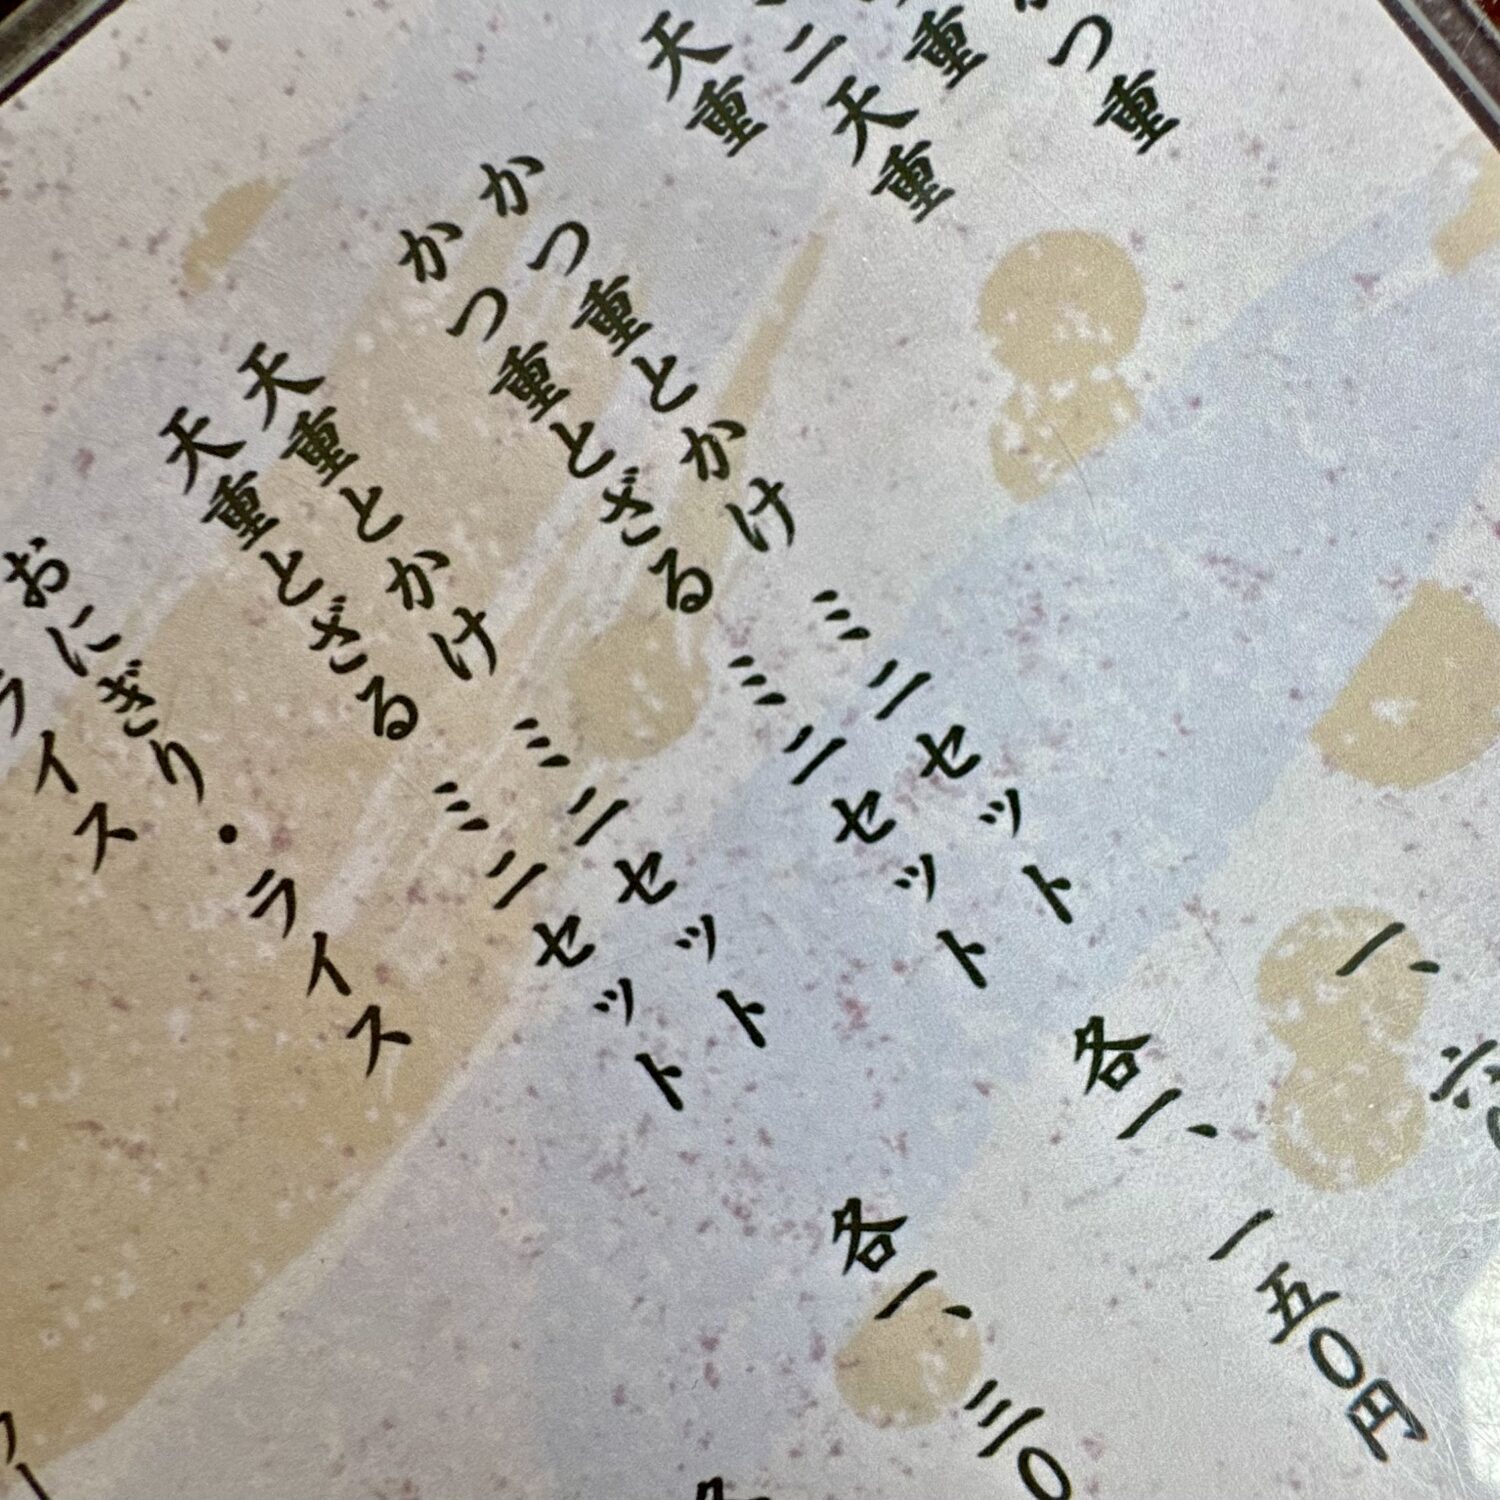 つ重
重
ニ天重
天重 一、
かつ重とかけ ミニセット
かつ重とざる ミニセット
各一、一五〇円
天重とかけ ミニセット
天重とざる ミニセット
各一、三〇
おにぎり・ライス
ライス